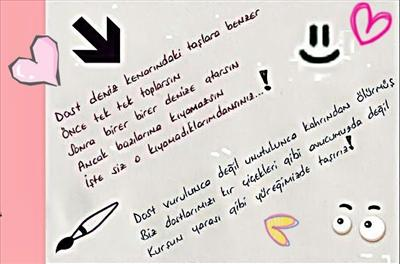 Dost deniz kenarındaki taşlara benzer
ÖNCE tek tek toplarsın
Sonra birer birer denize atarsın
Ancak bazılarına kıyamazsın
İşte siz o kıyamadıklarımdansınız...!
Dost vurulunca değil unutulunca kahrından ölürmüş
Biz dostlarımızı kır çiçekleri gibi avucumuzda değil
Kurşun yarası gibi yüreğimizde taşırız!